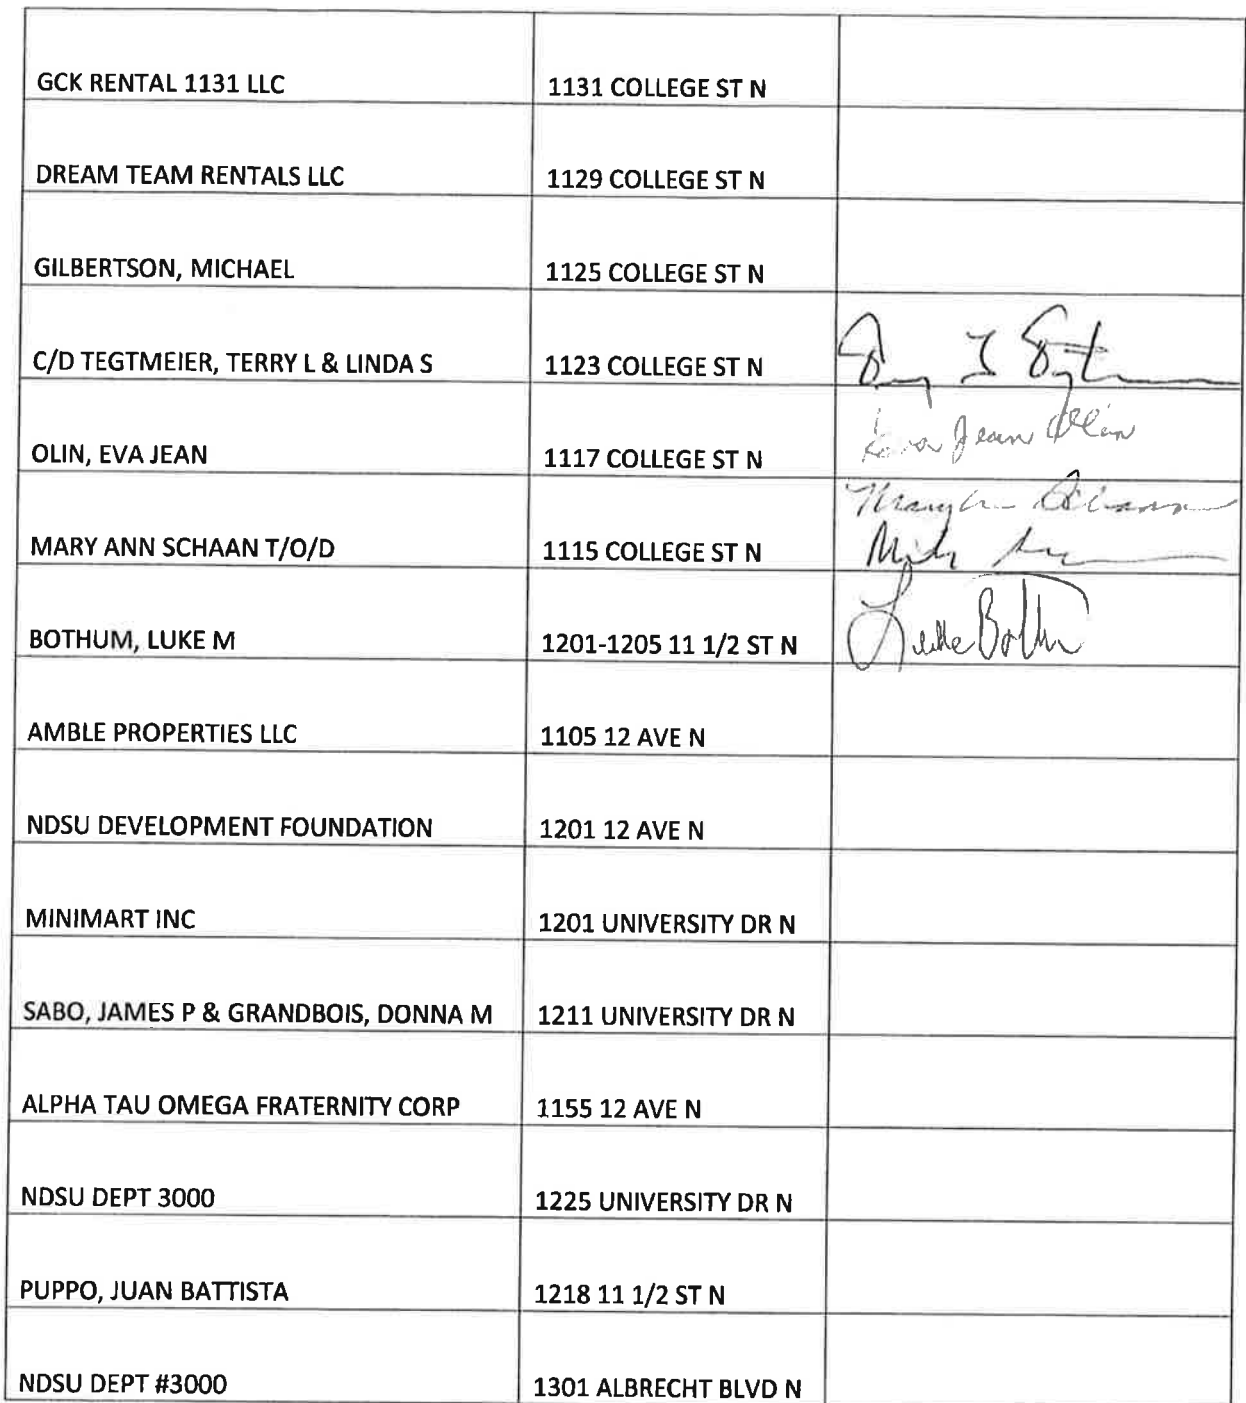 GCK RENTAL 1131 LLC 1131 COLLEGE ST N
DREAM TEAM RENTALS LLC 1129 COLLEGE ST N
GILBERTSON, MICHAEL 1125 COLLEGE ST N
C/D TEGTMEIER, TERRY L & LINDA S 1123 COLLEGE ST N
OLIN, EVA JEAN 1117 COLLEGE ST N Eva Jean Olin
MARY ANN SCHAAN T/O/D 1115 COLLEGE ST N
BOTHUM, LUKE M 1201-1205 11 1/2 ST N Luke
AMBLE PROPERTIES LLC 1105 12 AVE N
NDSU DEVELOPMENT FOUNDATION 1201 12 AVE N
MINIMART INC 1201 UNIVERSITY DR N
SABO, JAMES P & GRANDBOIS, DONNA M 1211 UNIVERSITY DR N
ALPHA TAU OMEGA FRATERNITY CORP 1155 12 AVE N
NDSU DEPT 3000 1225 UNIVERSITY DR N
PUPPO, JUAN BATTISTA 1218 11 1/2 ST N
NDSU DEPT #3000 1301 ALBRECHT BLVD N